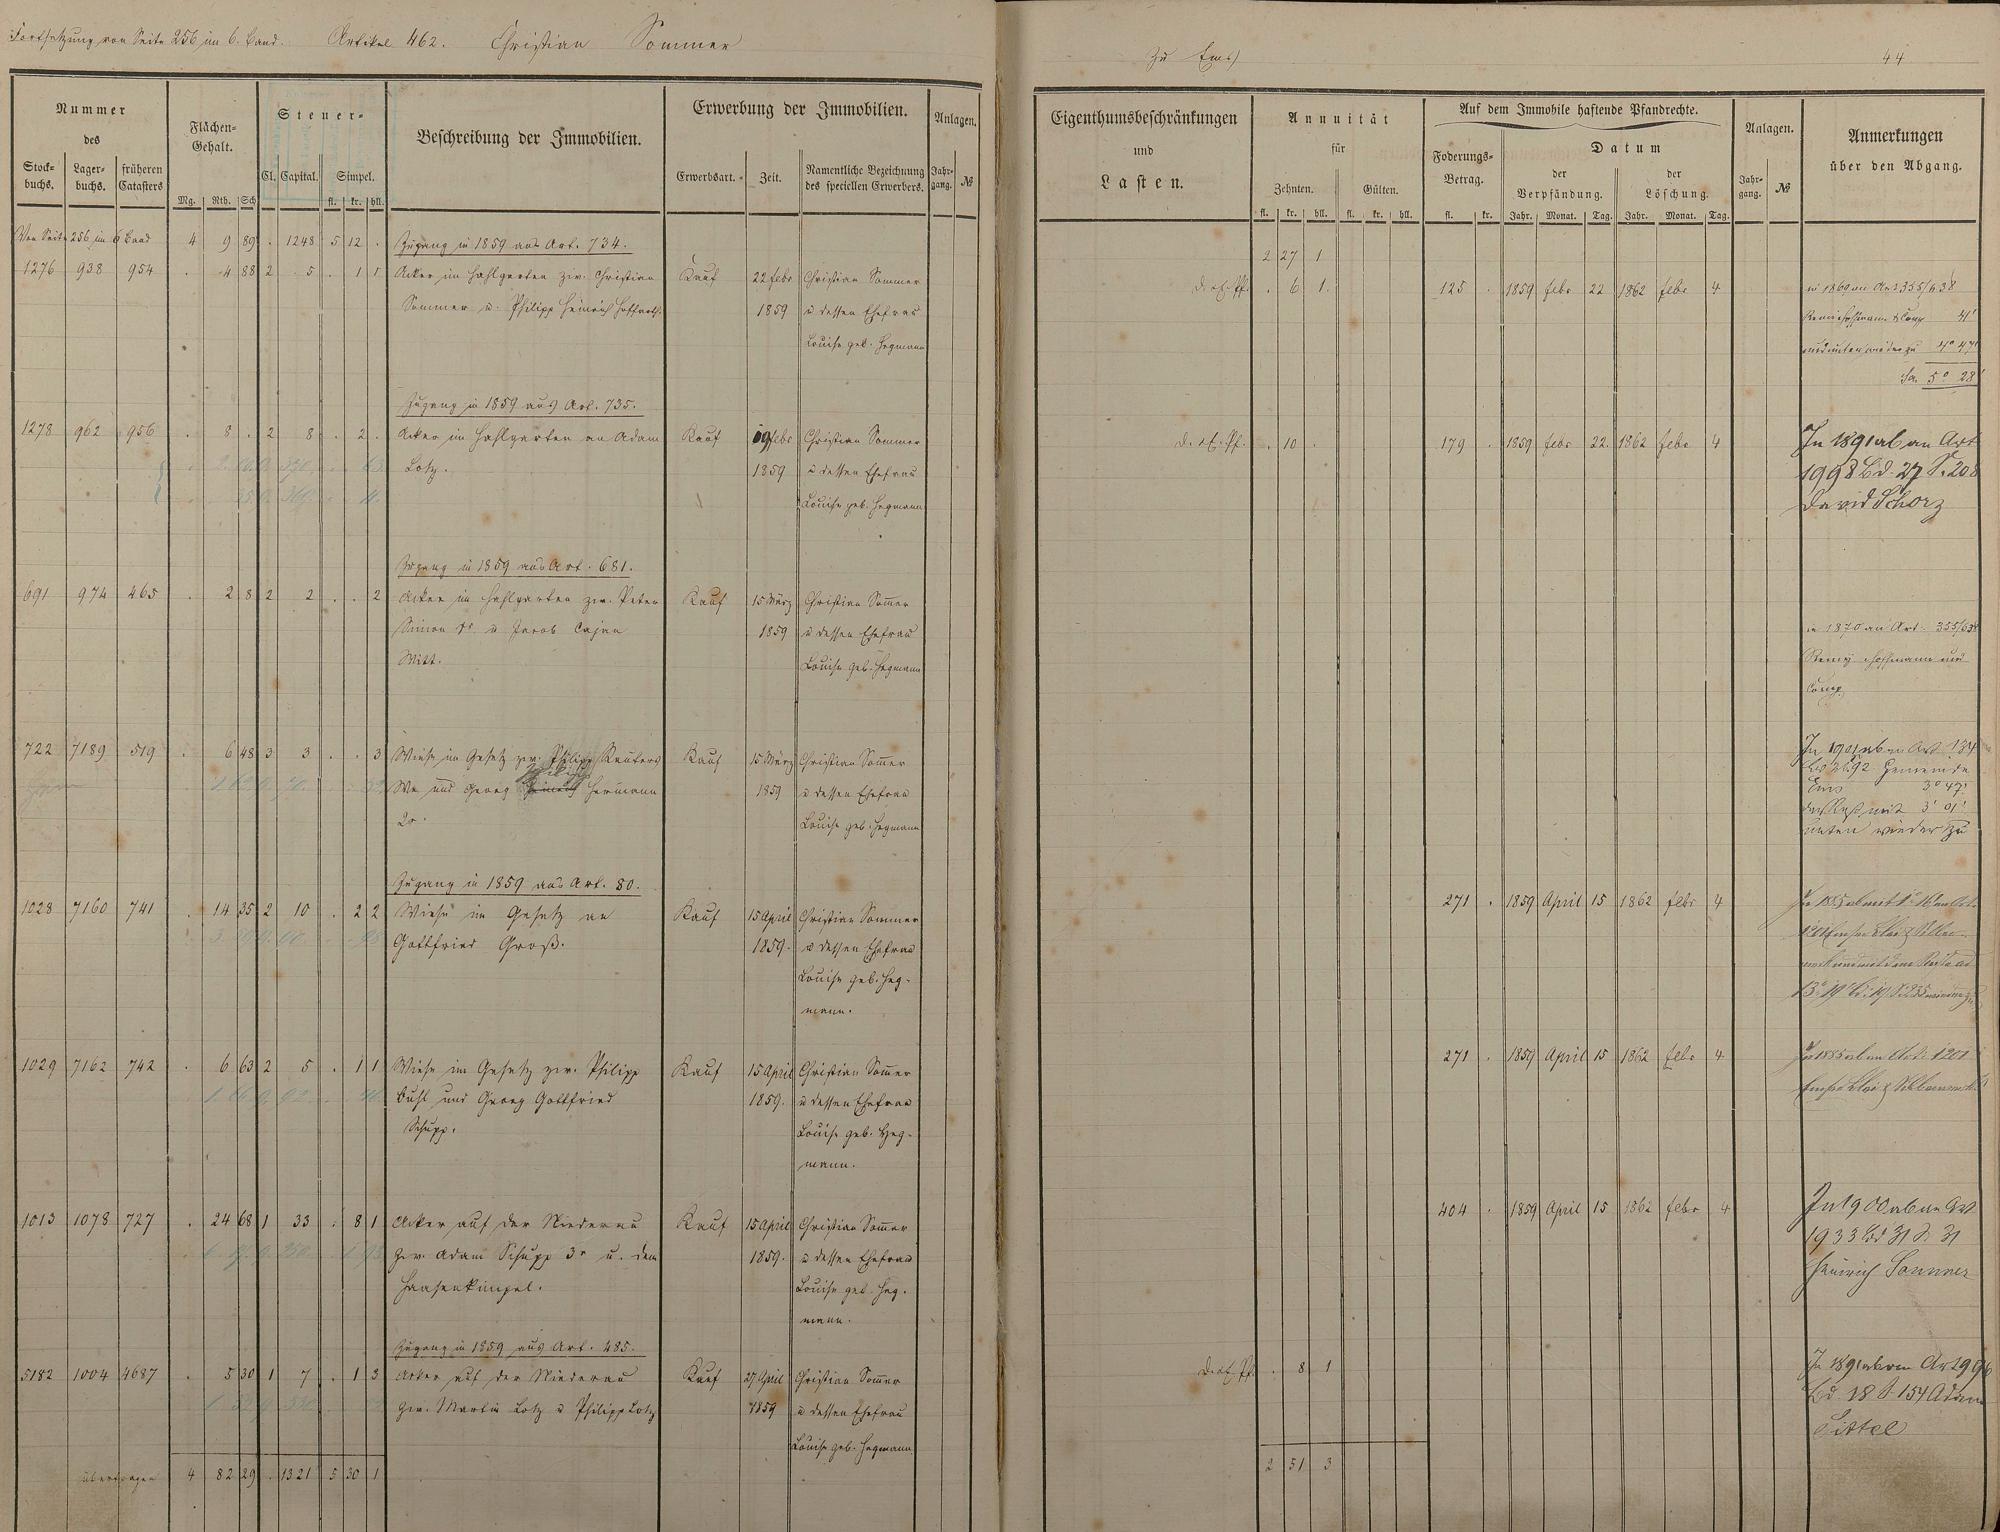 Fortsetzung von Seite 256 im 6. Band. Artikel 462. Christian Sommer
zu Ems
44
Nummer des
Stockbuchs. Lagerbuchs. früheren Catasters
Flächen-Gehalt.
Mg. Rth. Sch
Steuer-
Cl. Capital. Simpel.
fl. kr. hll.
Beschreibung der Immobilien.
Erwerbung der Immobilien.
Erwerbsart. Zeit. Namentliche Bezeichnung des speciellen Erwerbers.
Anlagen.
Jahrgang. №
Eigenthumsbeschränkungen
und
Lasten.
Annuität
für
Zehnten. Gülten.
fl. kr. hll. fl. kr. hll.
Auf dem Immobile haftende Pfandrechte.
Foderungs-Betrag.
fl. kr.
Datum
der Verpfändung. der Löschung.
Jahr. Monat. Tag. Jahr. Monat. Tag.
Anlagen.
Jahrgang. №
Anmerkungen
über den Abgang.
Von Seite 256 im 6 Band 4 9 89 . 1248 5 12 . Zugang in 1859 aus Art. 734.
2 27 1
1276 938 954 . 4 88 2 5 . 1 1 Acker im Hahlgarten zw. Christian Kauf 22 febr Christian Sommer
Sommer u. Philipp Heinrich 1859 u dessen Ehefrau
Louise geb. Hegmann
. 6 1 125 . 1859 febr 22 1862 febr 4
4° 47'
Sa. 5° 28'
Zugang in 1859 aus Art. 735.
1278 962 956 . 8 . 2 8 . 2 . Acker im Hahlgarten an Adam Kauf febr Christian Sommer
Lotz. 1859 u dessen Ehefrau
Louise geb. Hegmann
. 10 . 179 . 1859 febr 22 1862 febr 4
In 1891 ab an Art
1998 Bd. 27 S. 208
David Schorz
Zugang in 1859 aus Art. 681.
691 974 465 . 2 8 2 2 . . 2 Acker im Hahlgarten zw. Peter Kauf 15 März Christian Sommer
Simon u Jacob Cajan 1859 u dessen Ehefrau
Witt. Louise geb. Hegmann
in 1870 an Art. 355/638
Remy Hoffmann und
Comp.
722 7189 519 . 6 48 3 3 . . 3 Wiese im Gesetz zw. Philipp Reuters Kauf 15 März Christian Sommer
We und Georg Philipp Hermann 1859 u dessen Ehefrau
2r. Louise geb. Hegmann
In 1901 ab an Art 134
Gemeinde
Ems 3° 47'
der Rest mit 3' 01'
unten wieder zu
Zugang in 1859 aus Art. 80.
1028 7160 741 . 14 35 2 10 . 2 2 Wiese im Gesetz an Kauf 15 April Christian Sommer
Gottfried Groß. 1859. u dessen Ehefrau
Louise geb. Heg-
mann.
271 . 1859 April 15 1862 febr 4
1029 7162 742 . 6 63 2 5 . 1 1 Wiese im Gesetz zw. Philipp Kauf 15 April Christian Sommer
Buhl und Georg Gottfried 1859. u dessen Ehefrau
Schupp. Louise geb. Heg-
mann.
271 . 1859 April 15 1862 febr 4
In 1885 ab an Art. 1201
1013 1078 727 . 24 68 1 33 . 8 1 Acker auf der Niederau Kauf 15 April Christian Sommer
zw. Adam Schupp 3r u. dem 1859. u dessen Ehefrau
Haasenkimpel. Louise geb. Heg-
mann.
404 . 1859 April 15 1862 febr 4
In 1900 ab an Art
1933 Bd 31 S. 31
Heinrich Sommer
Zugang in 1859 aus Art. 485.
5182 1004 4687 . 5 30 1 7 . 1 3 Acker auf der Niederau Kauf 27 April Christian Sommer
zw. Martin Lotz u Philipp Lotz 1859 u dessen Ehefrau
Louise geb. Hegmann
. 8 1
In 1891 ab an Art 996
Bd. 18 S. 154 Adam
Sittel
übertragen 4 82 29 . 1321 5 30 1
2 51 3